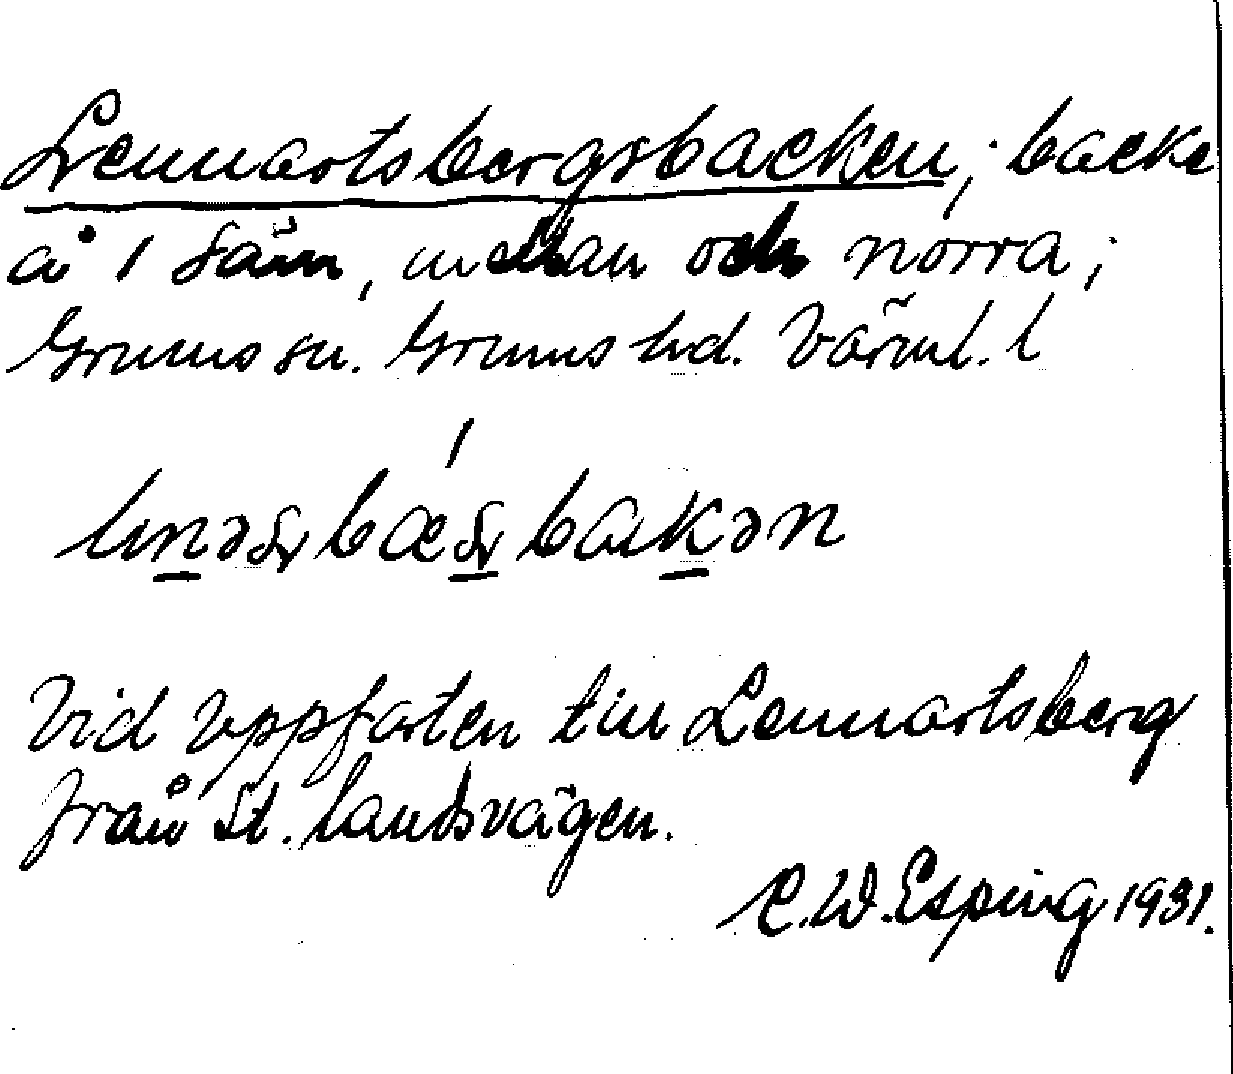 Lennartsbergsbacken; backe
å 1 Säm, mellan och norra;
Grums sn. Grums hd. Värml. l
Vid uppfarten till Lennartsberg
från St. landsvägen.
C.W. Esping 1931.